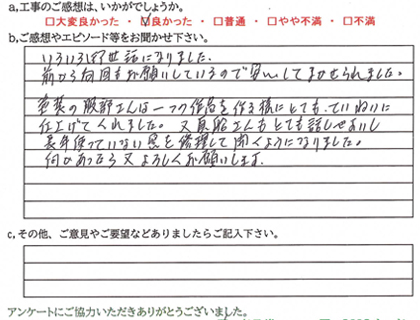 a,工事のご感想は、いかがでしょうか。
□大変良かった ・ ☑良かった ・ □普通 ・ □やや不満 ・ □不満
b,ご感想やエピソード等をお聞かせ下さい。
いろいろお世話になりました。
前から何回もお願いしているので安心してまかせられました。
塗装の服部さんは一つの作品を作る様にとても、ていねいに
仕上げてくれました。又真船さんもとても話しやすいし
長年使っていない窓を修理して開くようになりました。
何かあったら又よろしくお願いします。
c,その他、ご意見やご要望などありましたらご記入下さい。
アンケートにご協力いただきありがとうございました。